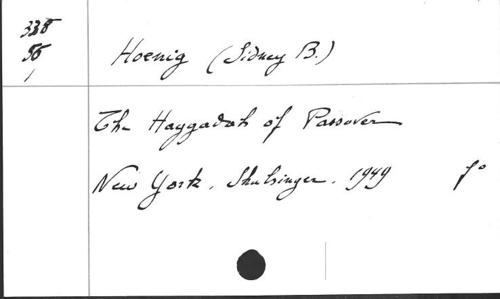 338
50
1
Hoenig (Sidney B.)
The Haggadah of Passover
New York, Shulsinger, 1949 f°